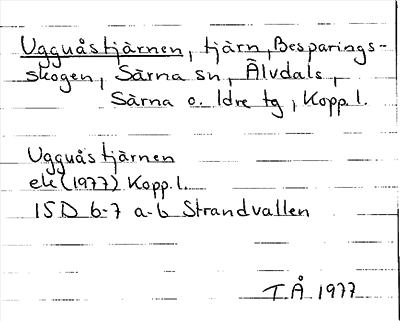 Ugguåstjärnen, tjärn, Besparings-
skogen, Särna sn, Älvdals,
Särna o. Idre tg, Kopp.l.
Ugguåstjärnen
ek (1977) Kopp.l.
15D 6-7 a-b Strandvallen
T.Å 1977